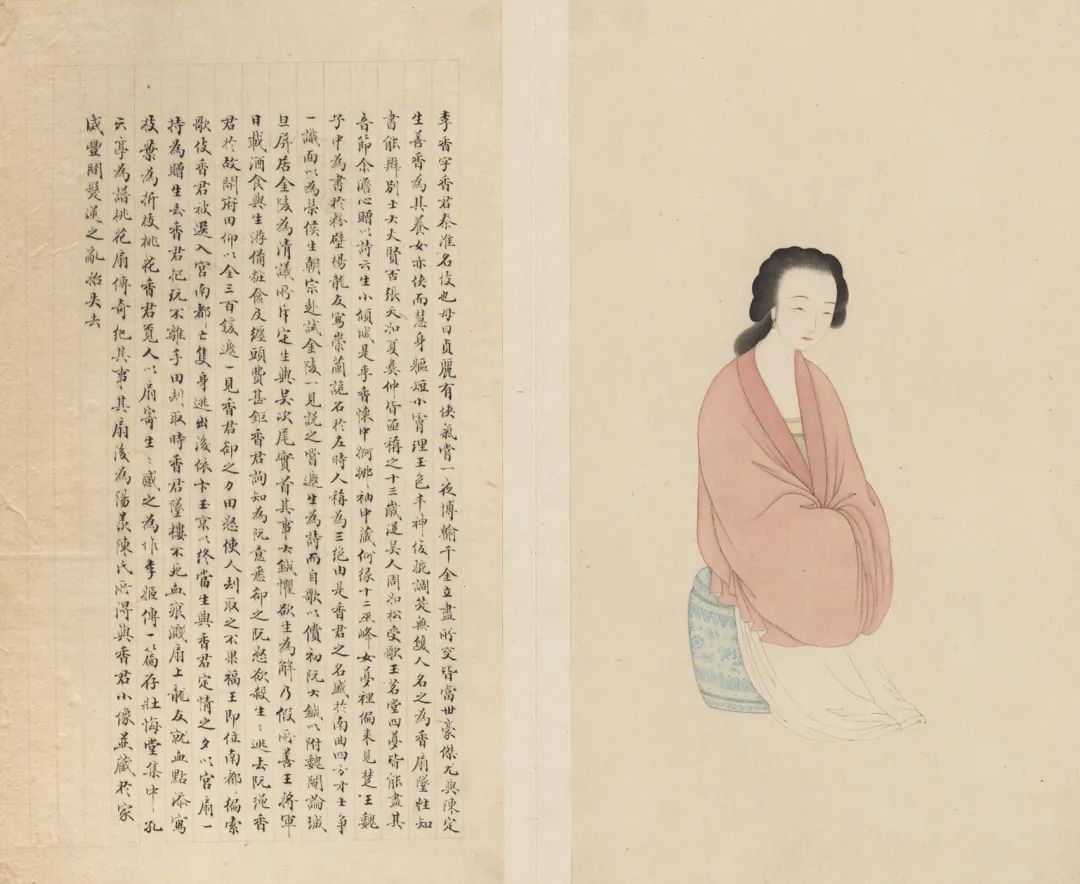 李香字香君秦淮名伎也母曰貞麗有俠氣嘗一夜博輸千金立盡所交皆當世豪傑尤與陳定
生善香為其養女亦俠而慧身軀短小膚理玉色丰神俊婉調笑無雙人名之為香扇墜性知
書能辨別士大夫賢否張天如夏彝仲皆亟稱之十三歲從吳人周如松受歌玉茗堂四夢皆能盡其
音節余澹心贈以詩云生小傾城是李香懷中婀娜袖中藏何緣十二巫峰女夢裡偏來見楚王魏
子中為書於粉壁楊龍友寫崇蘭詭石於左時人稱為三絕由是香君之名盛於南曲四方才士爭
一識面以為榮侯生朝宗赴試金陵一見說之嘗邀生為詩而自歌以償初阮大鋮以附魏閹論城
旦屏居金陵為清議所斥定生與吳次尾實首其事大鋮懼欲生為解乃假所善王將軍
日載酒食與生游備粧奩及纏頭費甚鉅香君詢知為阮意悉卻之阮怒欲殺生〻逃去阮繩香
君於故開府田仰以金三百鍰邀一見香君卻之力田怒使人刦取之不果福王即位南都徧索
歌伎香君被選入宮南都亡隻身逃出後依卞玉京以終當生與香君定情之夕以宮扇一
持為贈生去香君把玩不離手田刦取時香君墜樓不死血痕濺扇上龍友就血點添寫
枝葉為折枝桃花香君覓人以扇寄生〻感之為作李姬傳一篇存壯悔堂集中孔
云亭為譜桃花扇傳奇紀其事其扇後為陽羨陳氏所得與香君小像並藏於家
咸豐間髮逆之亂始失去